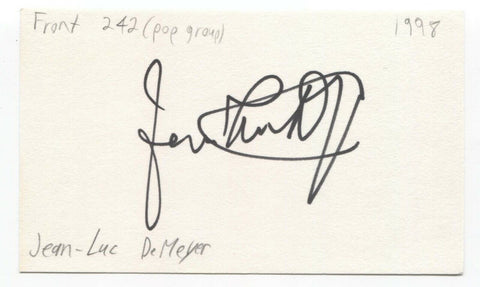 Front 242 (pop group) 1998
Jean-Luc DeMeyer